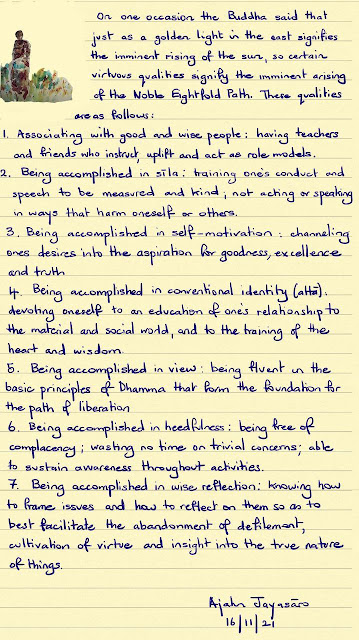 On one occasion the Buddha said that
just as a golden light in the east signifies
the imminent rising of the sun, so certain
virtuous qualities signify the imminent arising
of the Noble Eightfold Path. These qualities
are as follows:
1. Associating with good and wise people: having teachers
and friends who instruct, uplift and act as role models.
2. Being accomplished in sīla: training one's conduct and
speech to be measured and kind; not acting or speaking
in ways that harm oneself or others.
3. Being accomplished in self-motivation: channeling
ones desires into the aspiration for goodness, excellence
and truth
4. Being accomplished in conventional identity (attā):
devoting oneself to an education of one's relationship to
the material and social world, and to the training of the
heart and wisdom.
5. Being accomplished in view: being fluent in the
basic principles of Dhamma that form the foundation for
the path of liberation
6. Being accomplished in heedfulness: being free of
complacency; wasting no time on trivial concerns; able
to sustain awareness throughout activities.
7. Being accomplished in wise reflection: knowing how
to frame issues and how to reflect on them so as to
best facilitate the abandonment of defilement,
cultivation of virtue and insight into the true nature
of things.
Ajahn Jayasāro
16/11/21